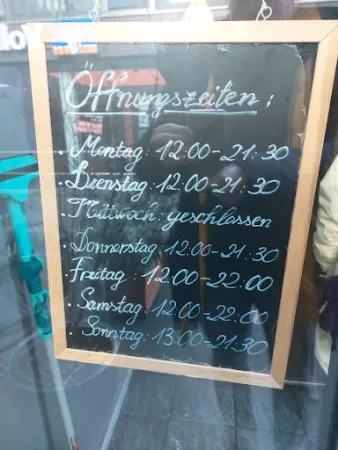 Öffnungszeiten:
· Montag: 12:00-21:30
· Dienstag: 12:00-21:30
· Mittwoch: geschlossen
· Donnerstag: 12:00-21:30
· Freitag: 12:00-22:00
· Samstag: 12:00-22:00
· Sonntag: 13:00-21:30